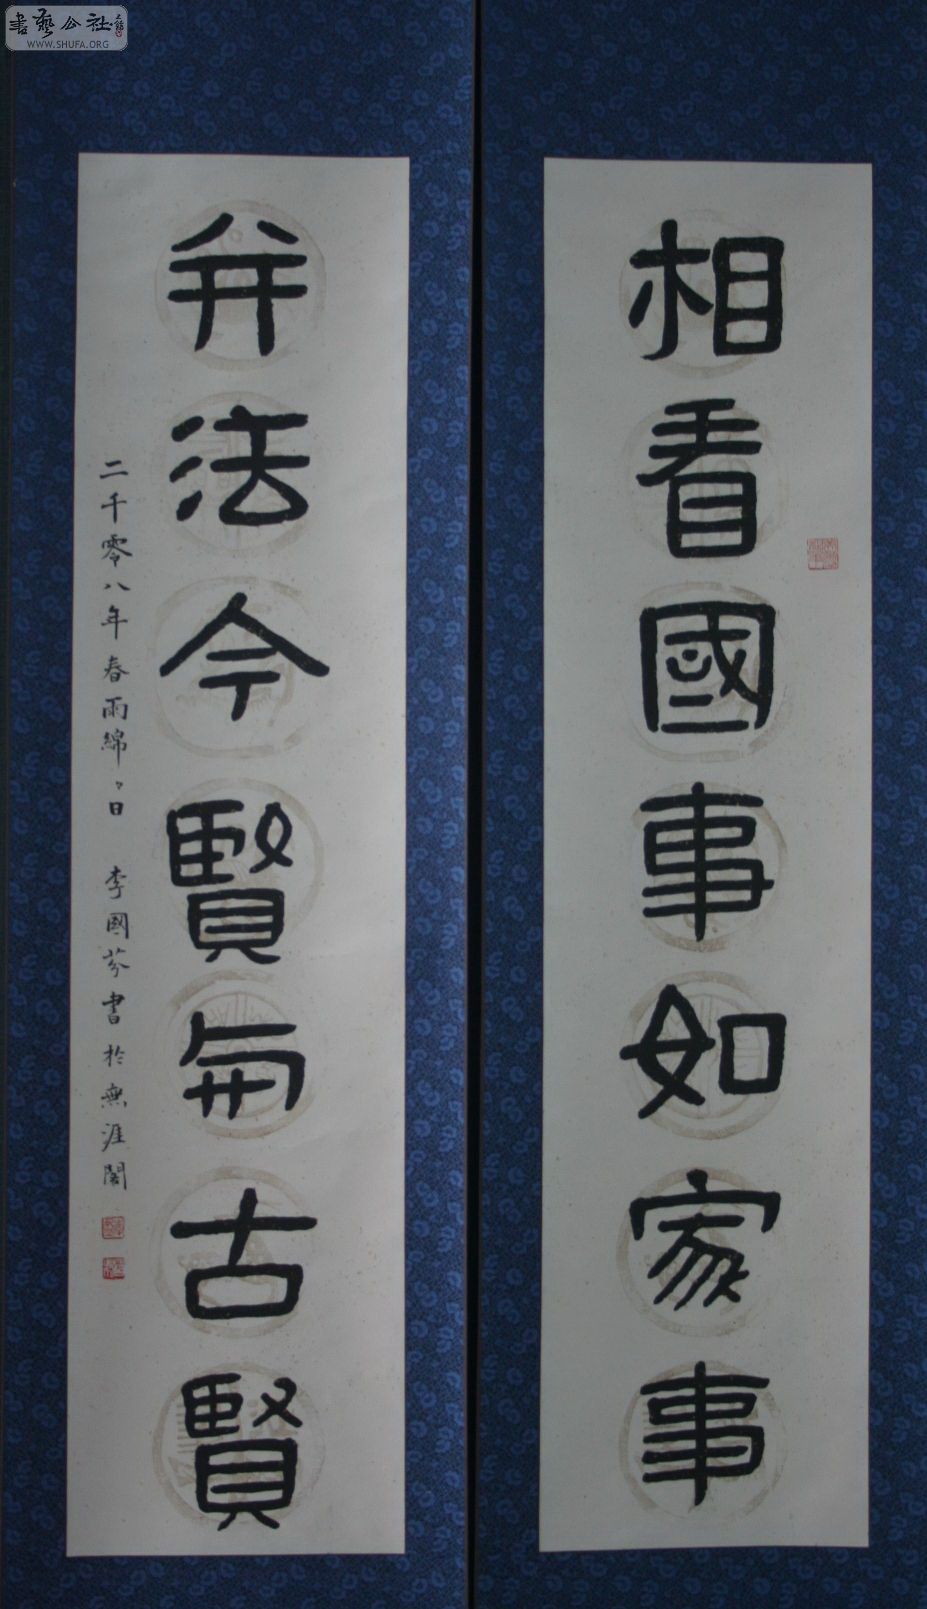 相看國事如家事
并法今賢與古賢
二千零八年春雨綿〻日 李國芬書於無涯閣
書藝公社
WWW.SHUFA.ORG